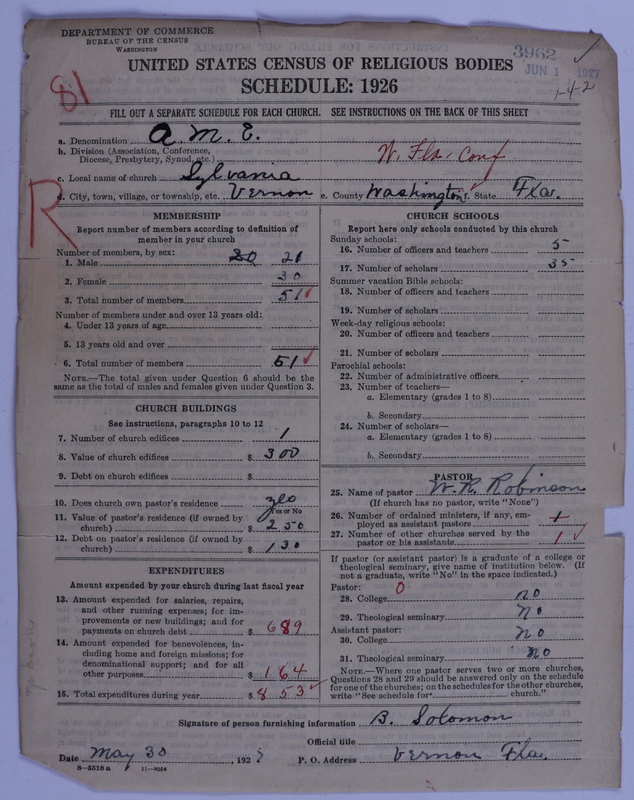 DEPARTMENT OF COMMERCE
BUREAU OF THE CENSUS
WASHINGTON
3962
JUN 1 1927
1-42
UNITED STATES CENSUS OF RELIGIOUS BODIES
SCHEDULE: 1926
81
FILL OUT A SEPARATE SCHEDULE FOR EACH CHURCH. SEE INSTRUCTIONS ON THE BACK OF THIS SHEET
a. Denomination A. M. E.
b. Division (Association, Conference,
Diocese, Presbytery, Synod, etc.) W. Fla. Conf
c. Local name of church Sylvania
d. City, town, village, or township, etc. Vernon e. County Washington f. State Fla.
R
MEMBERSHIP
Report number of members according to definition of
member in your church
Number of members, by sex:
1. Male 20 21
2. Female 30
3. Total number of members 51
Number of members under and over 13 years old:
4. Under 13 years of age
5. 13 years old and over
6. Total number of members 51
NOTE.—The total given under Question 6 should be the
same as the total of males and females given under Question 3.
CHURCH BUILDINGS
See instructions, paragraphs 10 to 12
7. Number of church edifices 1
8. Value of church edifices $ 300
9. Debt on church edifices $
10. Does church own pastor's residence yes
Yes or No
11. Value of pastor's residence (if owned by
church) $ 250
12. Debt on pastor's residence (if owned by
church) $ 130
EXPENDITURES
Amount expended by your church during last fiscal year
13. Amount expended for salaries, repairs,
and other running expenses; for im-
provements or new buildings; and for
payments on church debt $ 689
14. Amount expended for benevolences, in-
cluding home and foreign missions; for
denominational support; and for all
other purposes $ 164
15. Total expenditures during year $ 853
CHURCH SCHOOLS
Report here only schools conducted by this church
Sunday schools:
16. Number of officers and teachers 5
17. Number of scholars 35
Summer vacation Bible schools:
18. Number of officers and teachers
19. Number of scholars
Week-day religious schools:
20. Number of officers and teachers
21. Number of scholars
Parochial schools:
22. Number of administrative officers
23. Number of teachers—
a. Elementary (grades 1 to 8)
b. Secondary
24. Number of scholars—
a. Elementary (grades 1 to 8)
b. Secondary
PASTOR
25. Name of pastor W. R. Robinson
(If church has no pastor, write "None")
26. Number of ordained ministers, if any, em-
ployed as assistant pastors 1
27. Number of other churches served by the
pastor or his assistants 1
If pastor (or assistant pastor) is a graduate of a college or
theological seminary, give name of institution below. (If
not a graduate, write "No" in the space indicated.)
Pastor: 0
28. College no
29. Theological seminary no
Assistant pastor:
30. College no
31. Theological seminary no
NOTE.—Where one pastor serves two or more churches,
Questions 28 and 29 should be answered only on the schedule
for one of the churches; on the schedules for the other churches,
write "See schedule for church."
Signature of person furnishing information B. Solomon
Official title
Date May 30, 192 P. O. Address Vernon Fla.
8-5518a 11-9054